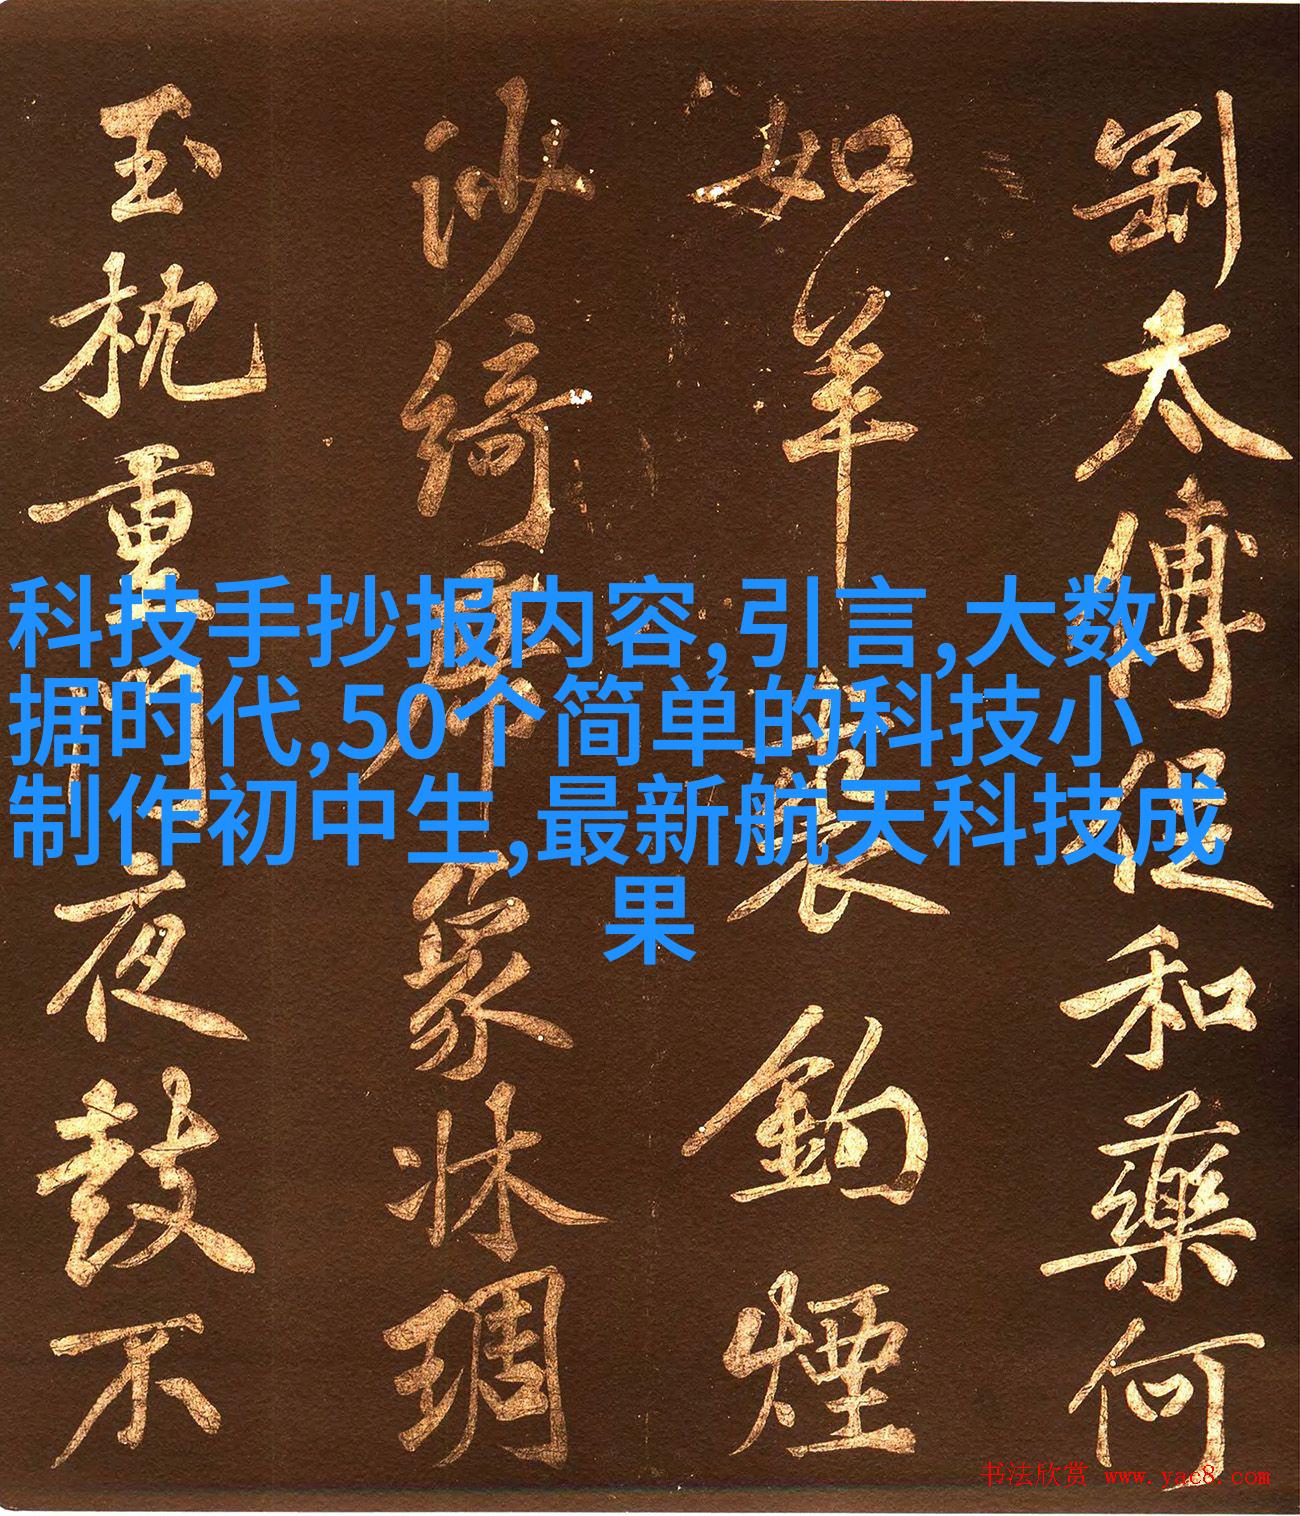 劉太傅促和藥何
如羊裏鈎煙
沙綺席篆牀琱
玉枕重門夜鼓不
科技手抄报内容,引言,大数
据时代,50个简单的科技小
制作初中生,最新航天科技成
果
书法欣赏 www.yac8.com